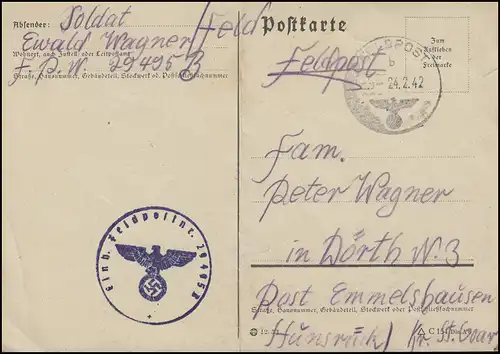 Absender: Soldat
Ewald Wagner / Feld
Wohnort, auch Zustell- oder Leitpostamt
F. P. W. 29495 B
Straße, Hausnummer, Gebäudeteil, Stockwerk od. Postschließfachnummer
Postkarte
Feldpost
Zum
Aufkleben
der
Freimarke
FELDPOST
b
24.2.42
Fam.
Peter Wagner
in Dörth N. 3
Post Emmelshausen
Straße, Hausnummer, Gebäudeteil, Stockwerk oder Postschließfachnummer
Hunsrück / Kr. St. Goar
Einh. Feldpostnr. 29495 B